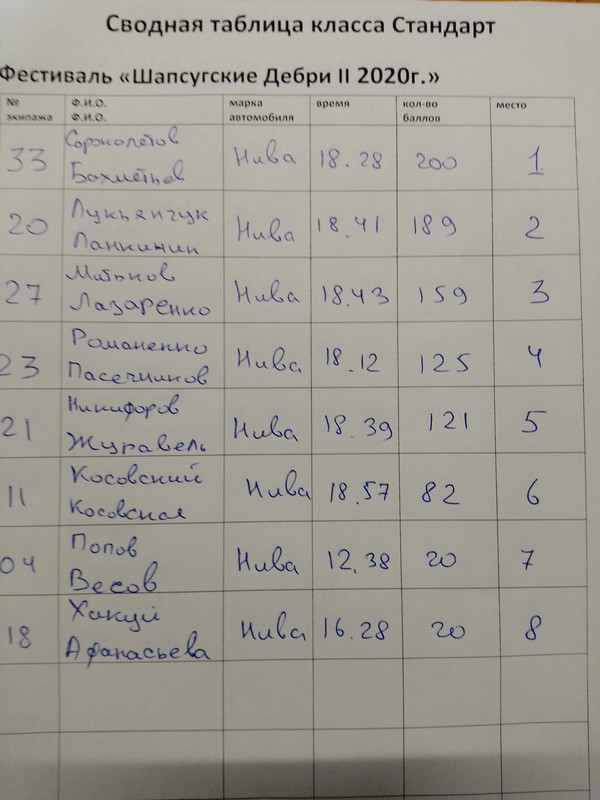 Сводная таблица класса Стандарт
Фестиваль «Шапсугские Дебри II 2020г.»
№ экипажа Ф.И.О. Ф.И.О. марка автомобиля время кол-во баллов место
33 Бахметьев Нива 18.28 200 1
20 Лукьянчук Панкинин Нива 18.41 189 2
27 Митьков Лазаренко Нива 18.43 159 3
23 Романенко Пасечников Нива 18.12 125 4
21 Никифоров Журавель Нива 18.39 121 5
11 Косовский Косовская Нива 18.57 82 6
04 Попов Весов Нива 12.38 20 7
18 Хакуй Афанасьева Нива 16.28 20 8